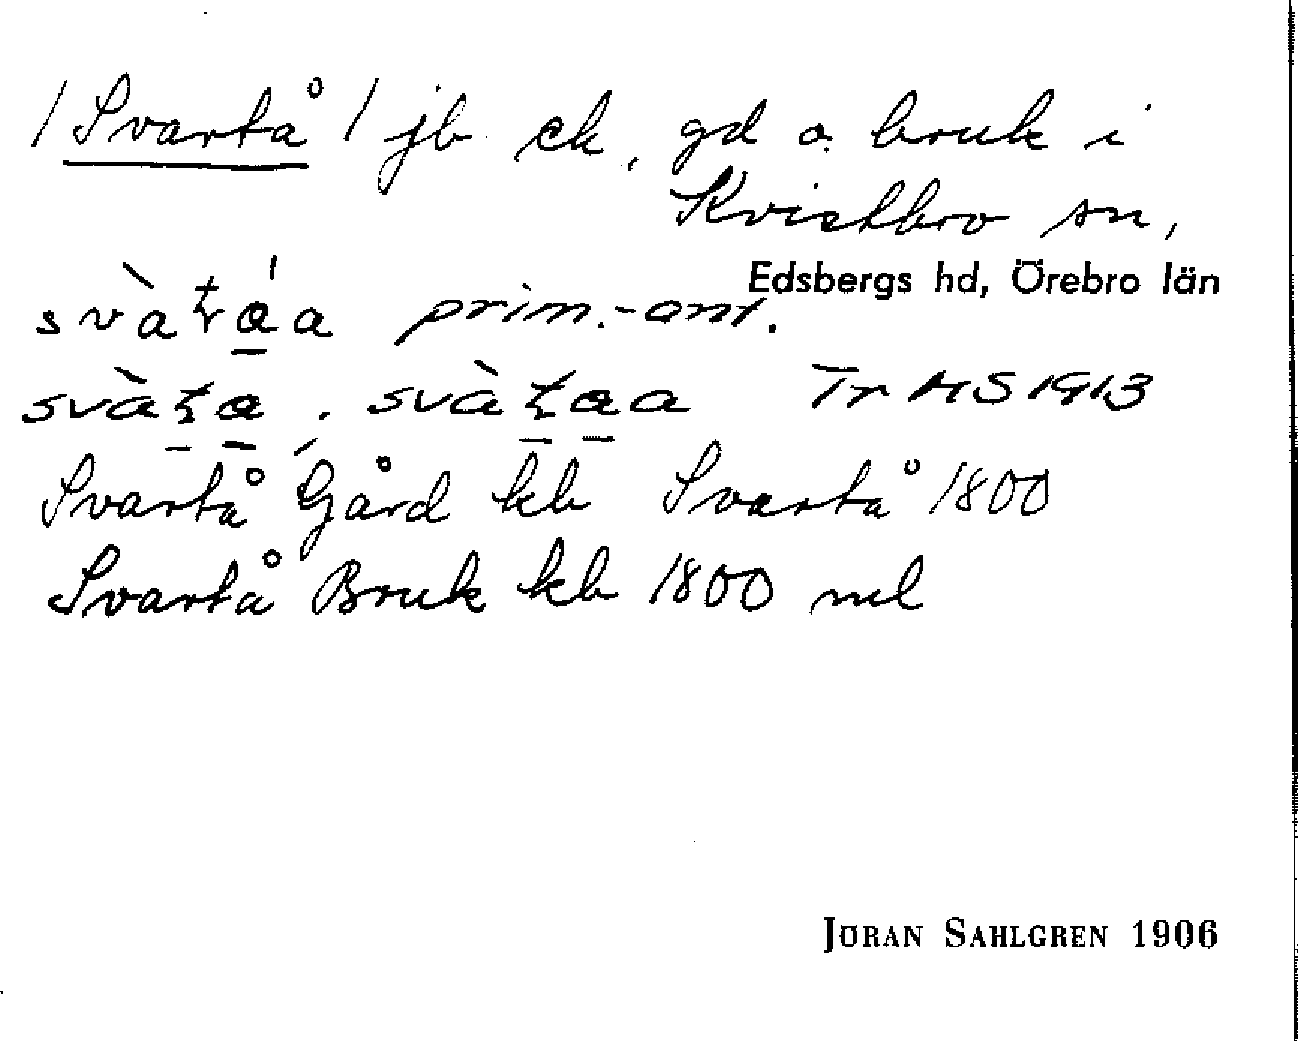 /Svartå/ jb ek, gd o. bruk i
Kvistbro sn,
Edsbergs hd, Örebro län
prim.-ant.
Tr MS 1913
Svartå Gård kb Svartå 1800
Svartå Bruk kb 1800 ml
JÖRAN SAHLGREN 1906